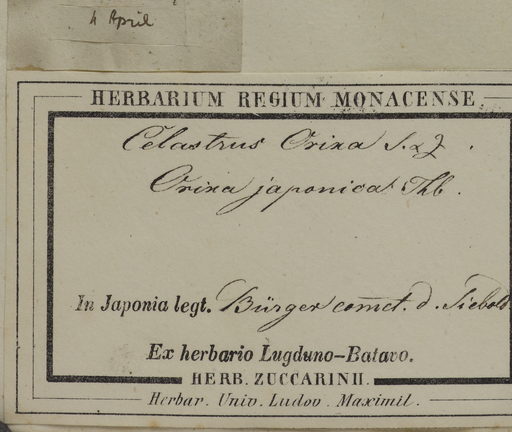 4 April
HERBARIUM REGIUM MONACENSE
Celastrus Orixa S. & Z.
Orixa japonica Thb.
In Japonia legt. Bürger comct. d. Siebold
Ex herbario Lugduno-Batavo.
HERB. ZUCCARINII.
Herbar. Univ. Ludov. Maximil.